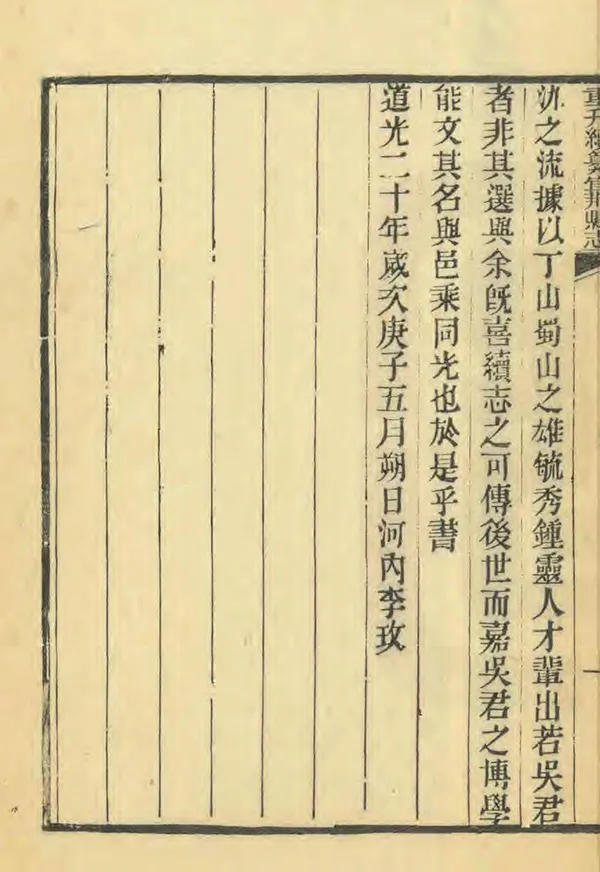 重刋續纂宜荆縣志
氿之流據以丁山蜀山之雄毓秀鍾靈人才輩出若吳君
者非其選與余旣喜續志之可傳後世而嘉吳君之博學
能文其名與邑乘同光也於是乎書
道光二十年歲次庚子五月朔日河內李玫